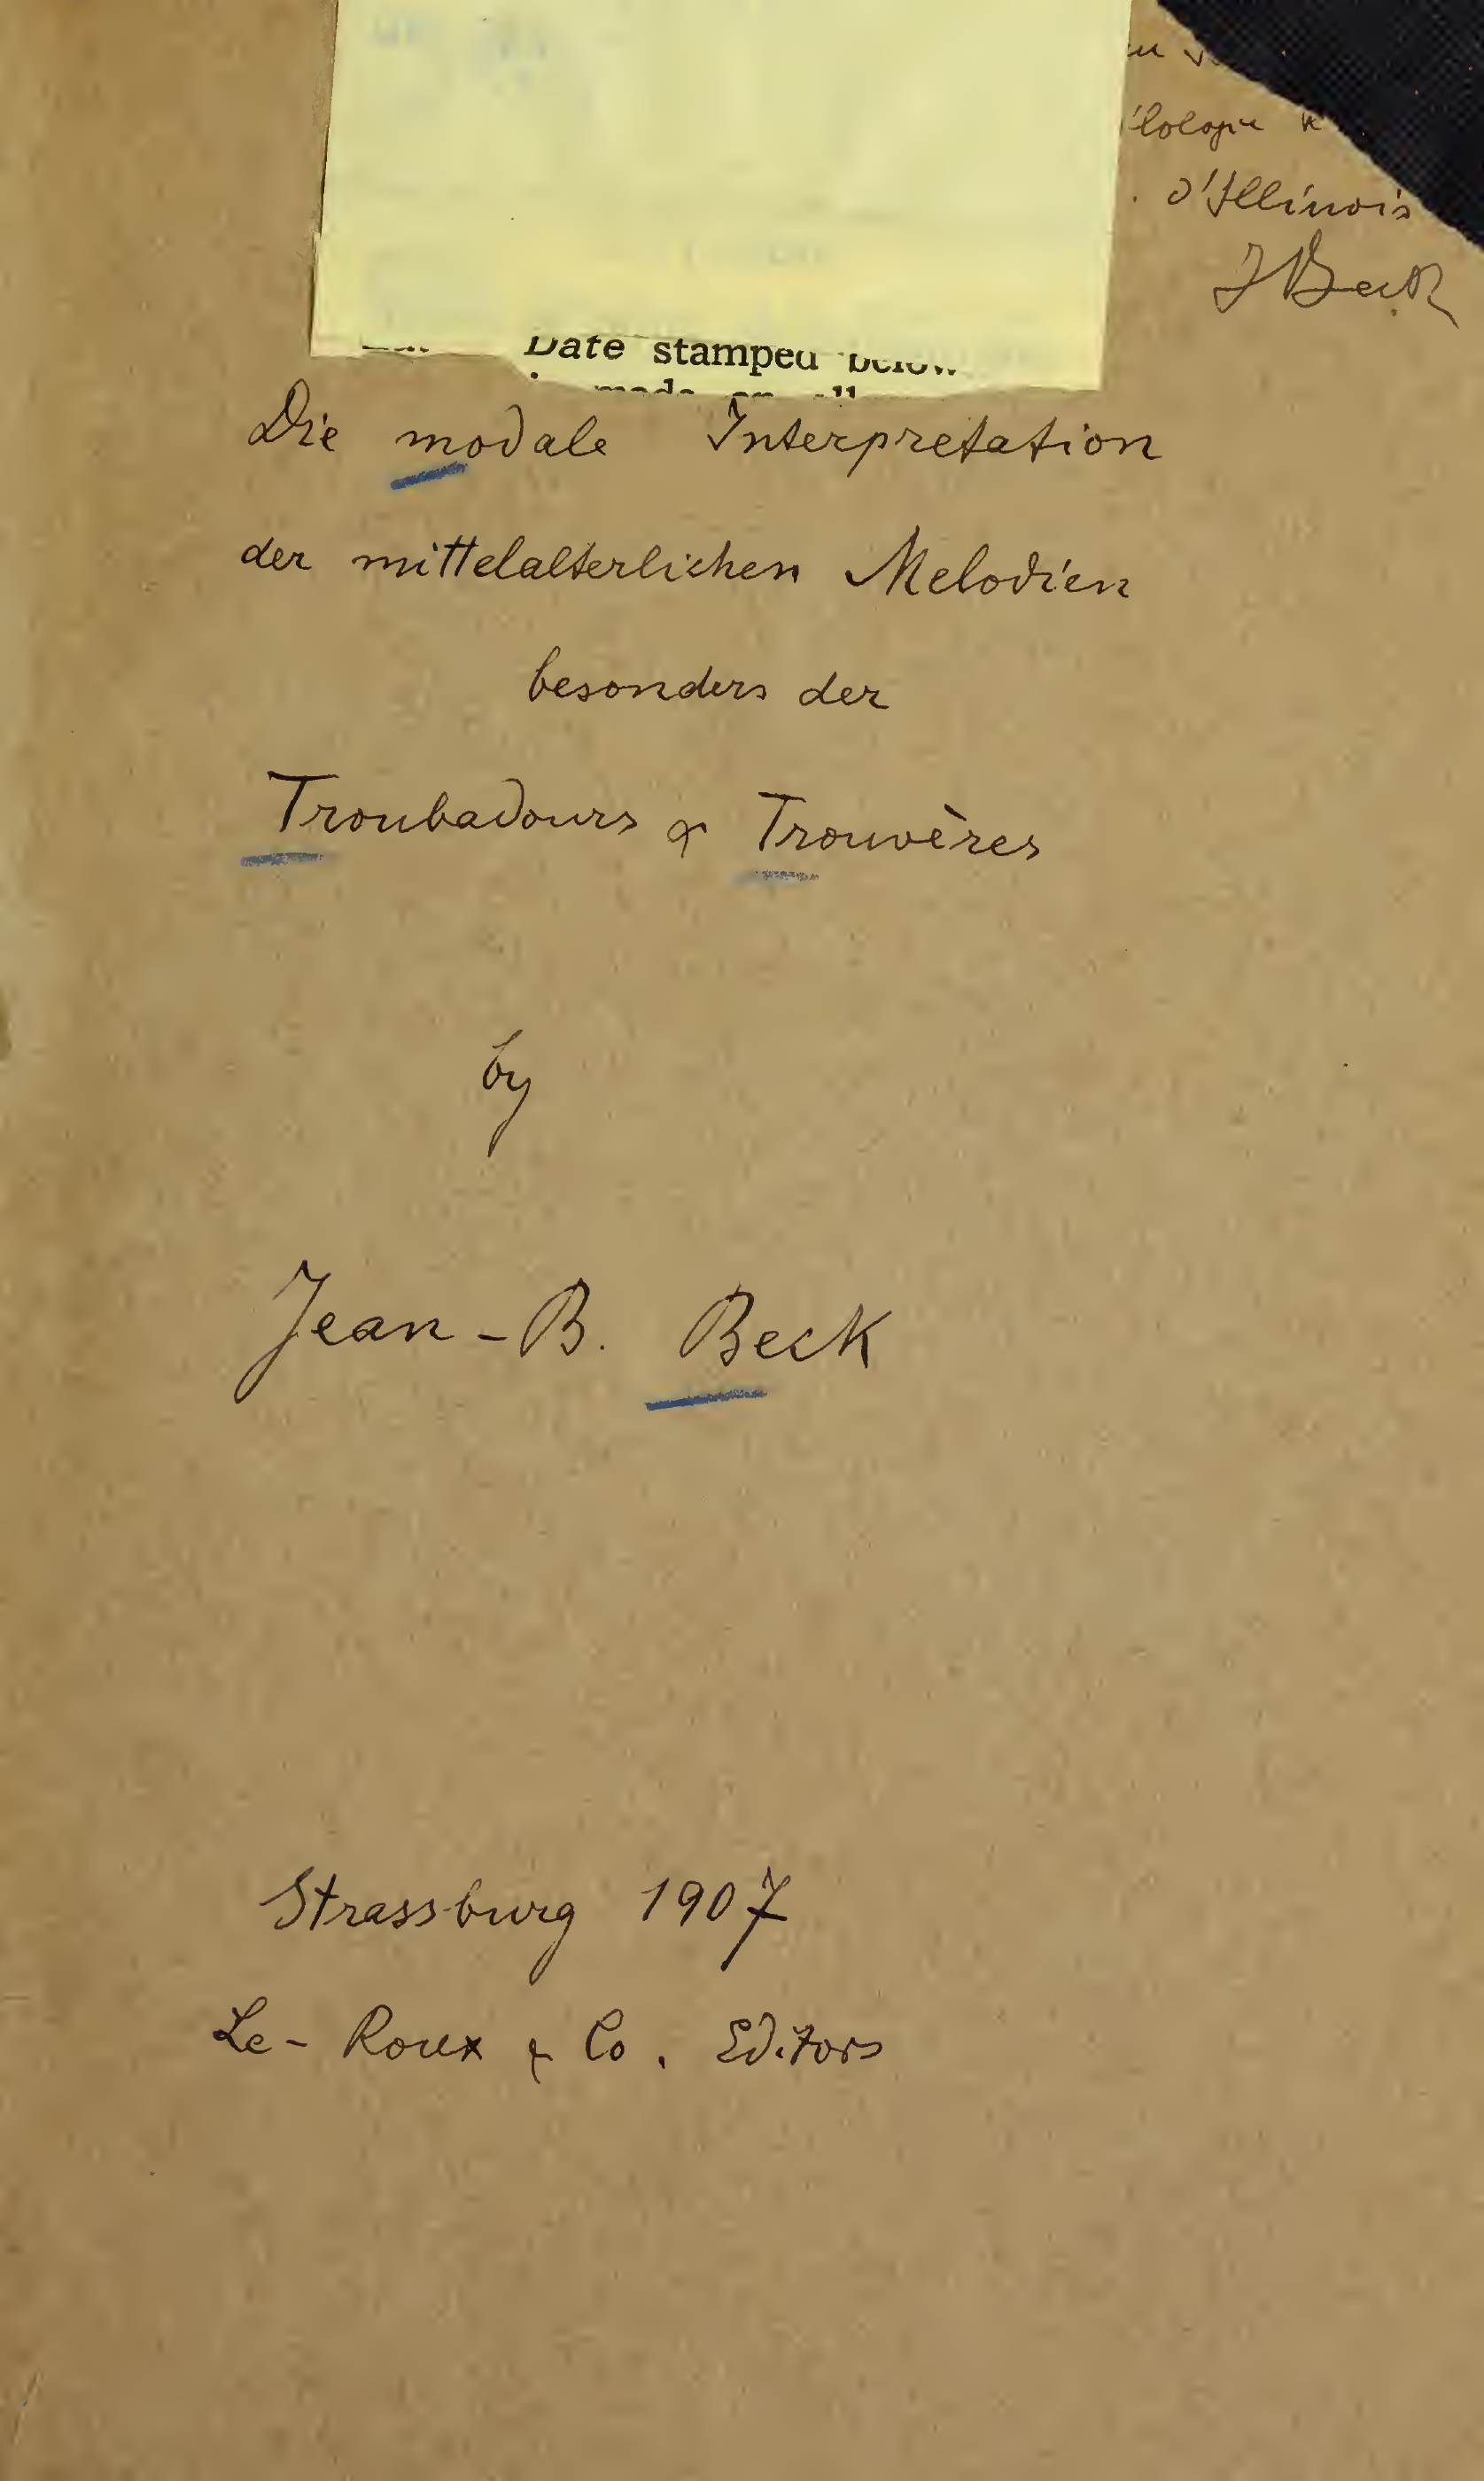 d'Illinois
JBeck
Date stamped below
Die modale Interpretation
der mittelalterlichen Melodien
besonders der
Troubadours & Trouvères
by
Jean-B. Beck
Strassburg 1907
Le-Roux & Co. Editors